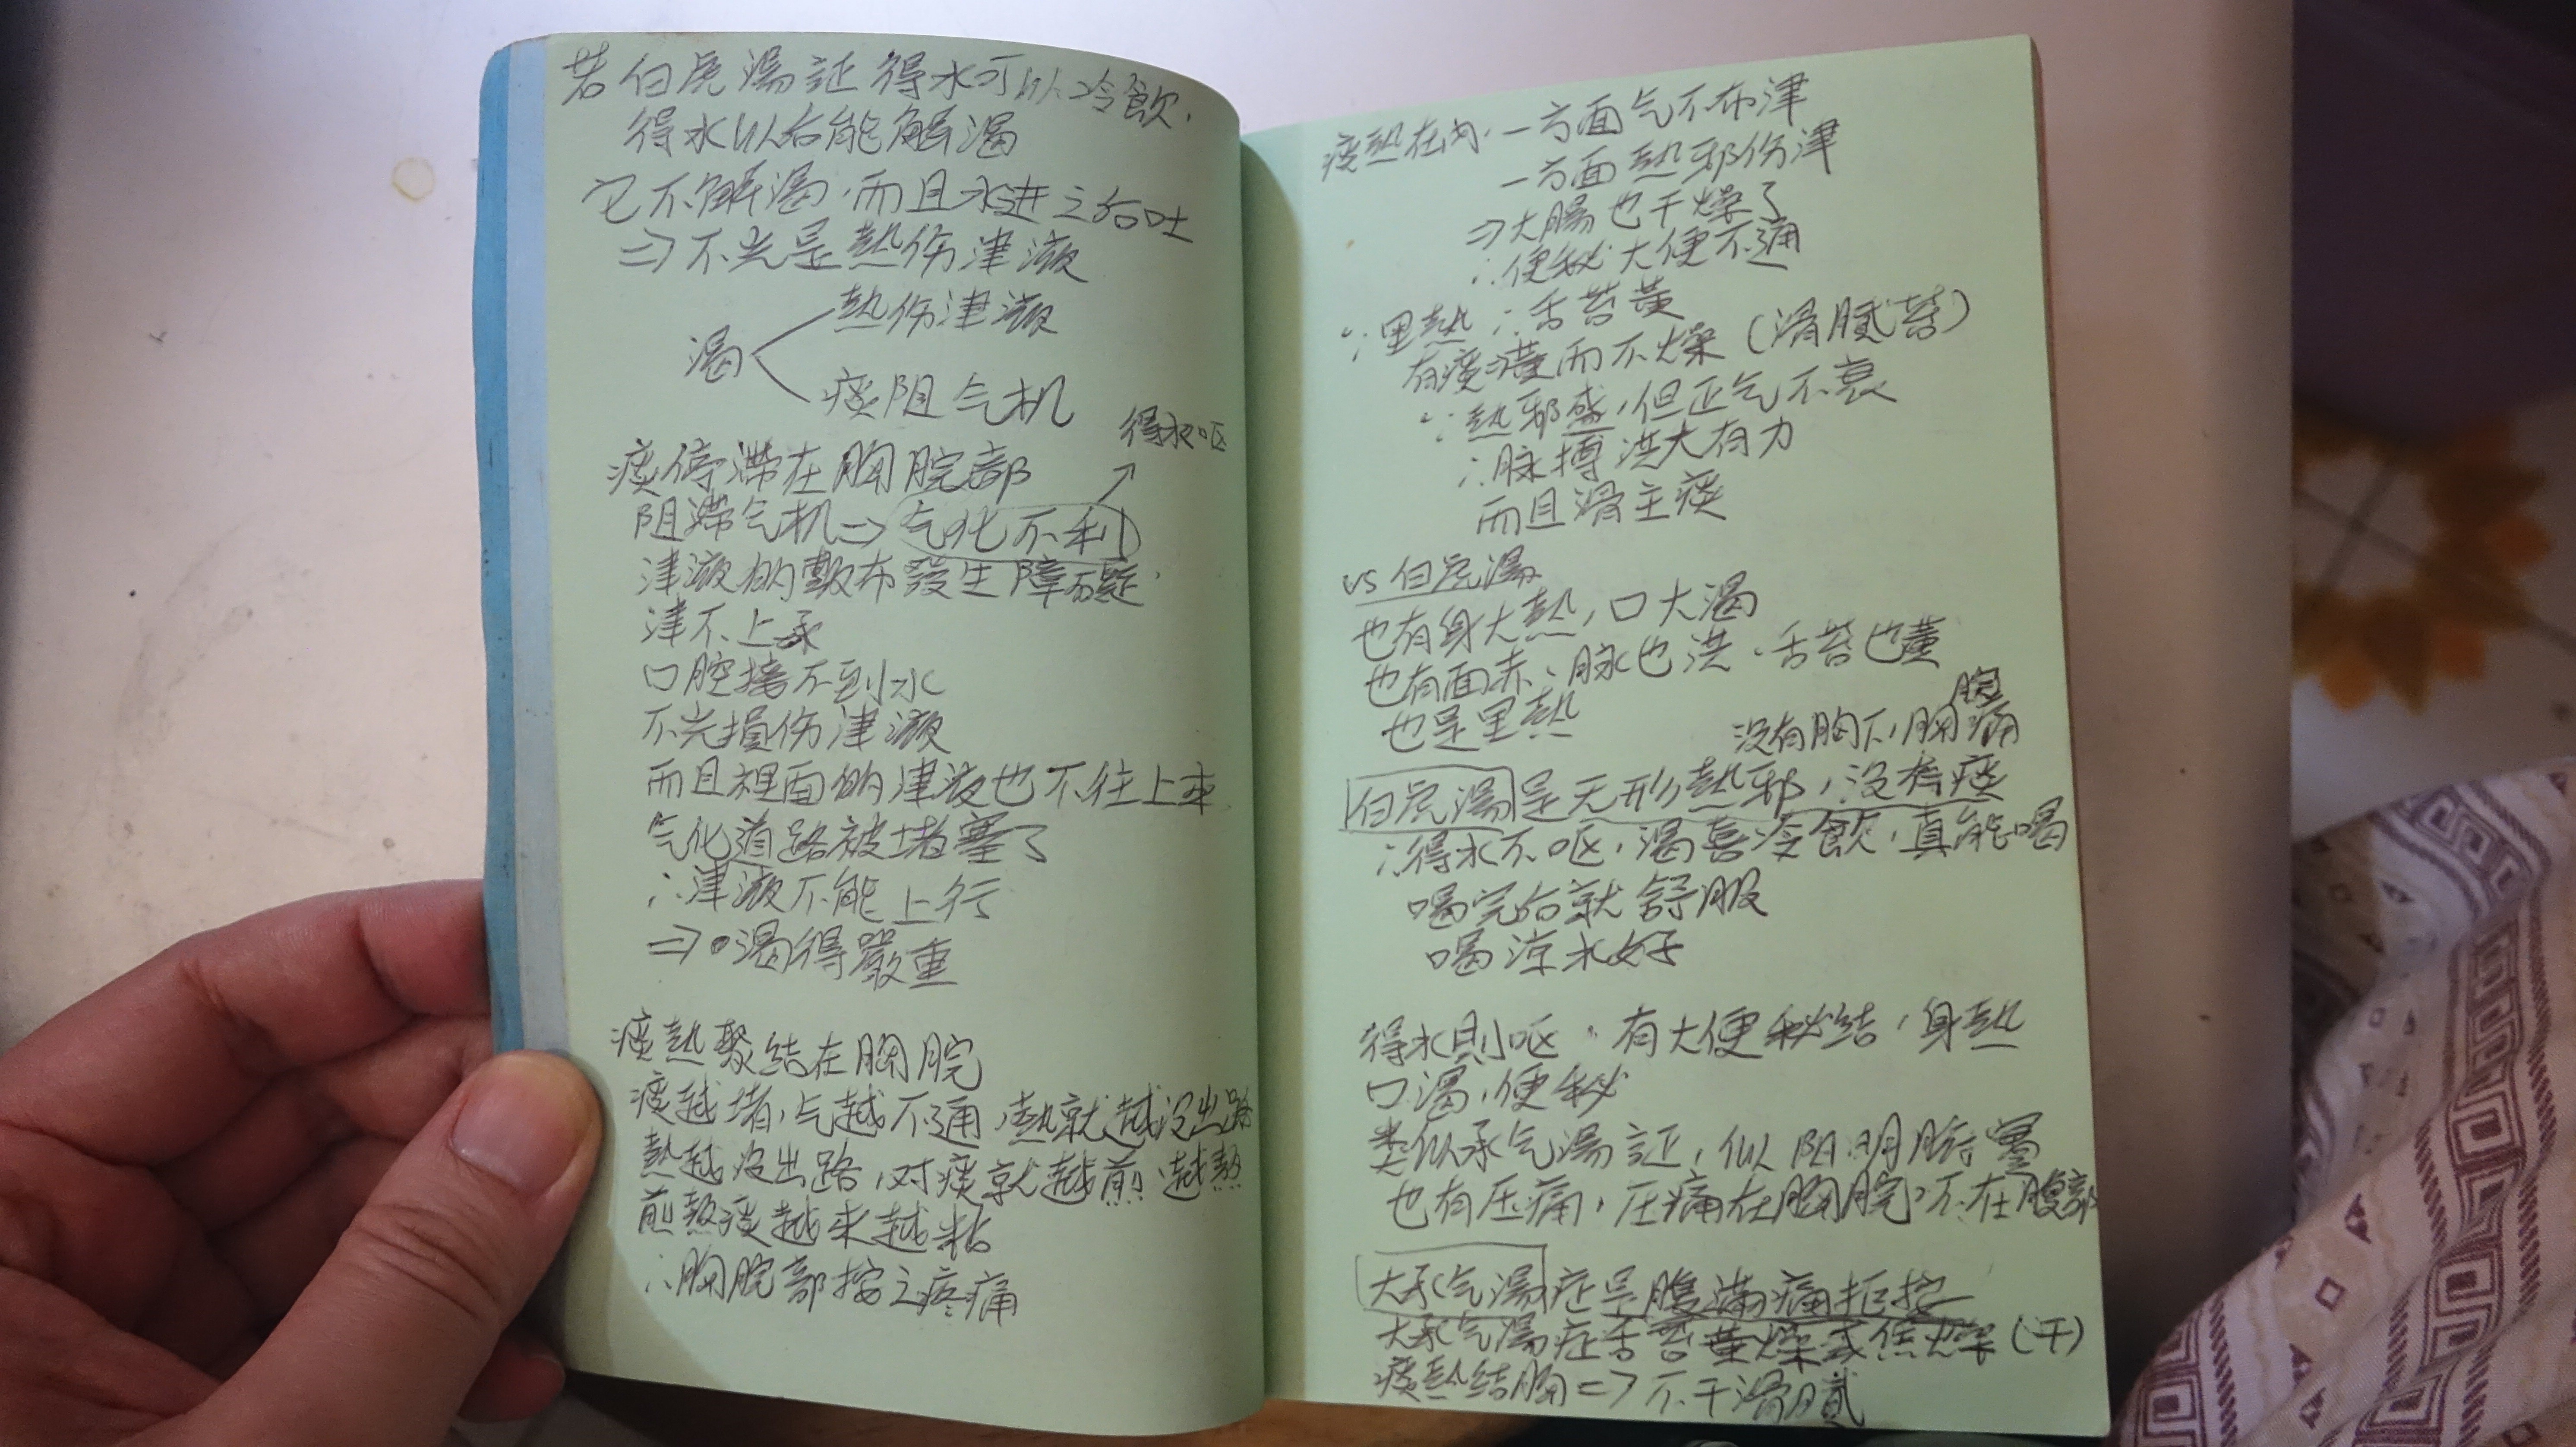 若白虎湯証得水可以冷飲.
得水以后能解渴
它不解渴.而且水进之后吐
⇒不光是熱伤津液
熱伤津液
渴
痰阻气机
得水呕
痰停滯在胸脘部
阻滯气机⇒气化不利
津液的敷布發生障碍.
津不上承
口腔接不到水
不光損伤津液
而且裡面的津液也不往上來
气化道路被堵塞了
∴津液不能上行
⇒渴得嚴重
痰熱聚結在胸脘
痰越堵,气越不通,熱就越没出路
熱越没出路,对痰就越煎.越熬
煎熬痰越来越粘
∴胸脘部按之疼痛
痰熱在内.一方面气不布津
一方面熱邪伤津
⇒大腸也干燥了
∴便秘大便不通
∵里熱∴舌苔黄
有痰黄而不燥(滑腻苔)
∵熱邪盛,但正气不衰
∴脉搏洪大有力
而且滑主痰
vs白虎湯
也有身大熱,口大渴
也有面赤、脉也洪.舌苔也黄
也是里熱
没有胸下,胸脘痛
白虎湯是无形熱邪,没有痰
∴得水不呕,渴喜冷飲,真能喝
喝完后就舒服
喝涼水好
得水則呕.有大便秘結,身熱
口渴,便秘
类似承气湯証,似阳明腑實
也有压痛,压痛在胸脘,不在腹部
大承气湯症是腹滿痛拒按
大承气湯症舌苔黄燥或焦燥(干)
痰熱結胸⇒不干滑腻